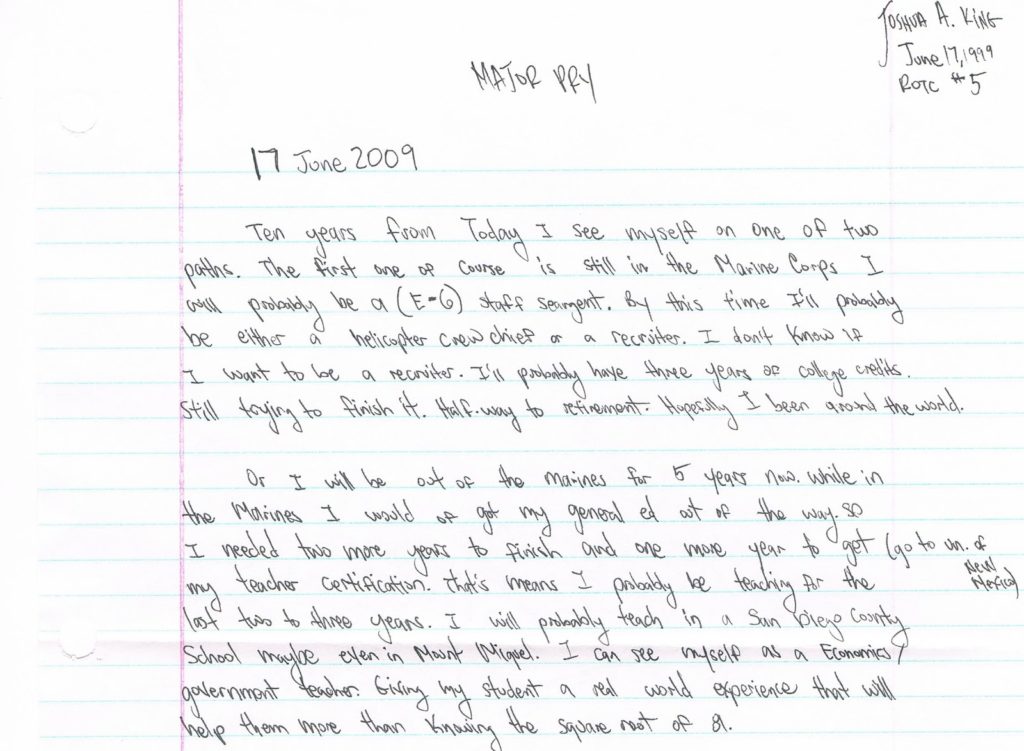 JOSHUA A. KING
June 17, 1999
ROTC #5
MAJOR PRY
17 June 2009
Ten years from Today I see myself on one of two
paths. The first one of course is still in the Marine Corps I
will probably be a (E-6) staff seargent. By this time I'll probably
be either a helicopter crew chief or a recruiter. I don't know if
I want to be a recruiter. I'll probably have three years of college credits.
Still trying to finish it. Half-way to retirement. Hopefully I been around the world.
Or I will be out of the marines for 5 years now. while in
the Marines I would of got my general ed out of the way. so
I needed two more years to finish and one more year to get (go to un. of
New Mexico)
my teacher certification. that's means I probably be teaching for the
last two to three years. I will probably teach in a San Diego County
School maybe even in Mount Miguel. I can see myself as a Economics/
government teacher. Giving my student a real world experience that will
help them more than knowing the square root of 81.